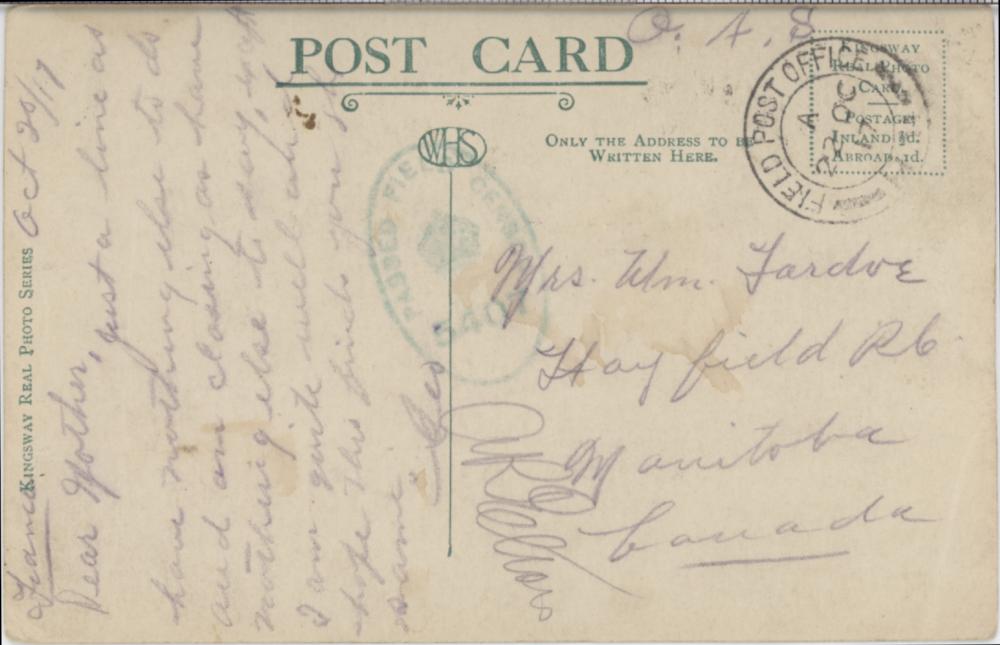 POST CARD
O. A. S
WHS
ONLY THE ADDRESS TO BE
WRITTEN HERE.
KINGSWAY
REAL PHOTO
CARD.
POSTAGE:
INLAND ½d.
ABROAD 1d.
FIELD POST OFFICE
A
22 OC
17
PASSED FIELD CENSOR
5407
KINGSWAY REAL PHOTO SERIES
France Oct 20/17
Dear Mother, Just a line as
have nothing else to do
and am closing as have
nothing else to say, except
I am quite well and
hope this finds you the
same
Geo
Mrs. Wm. Fardoe
Hayfield R6
Manitoba
Canada